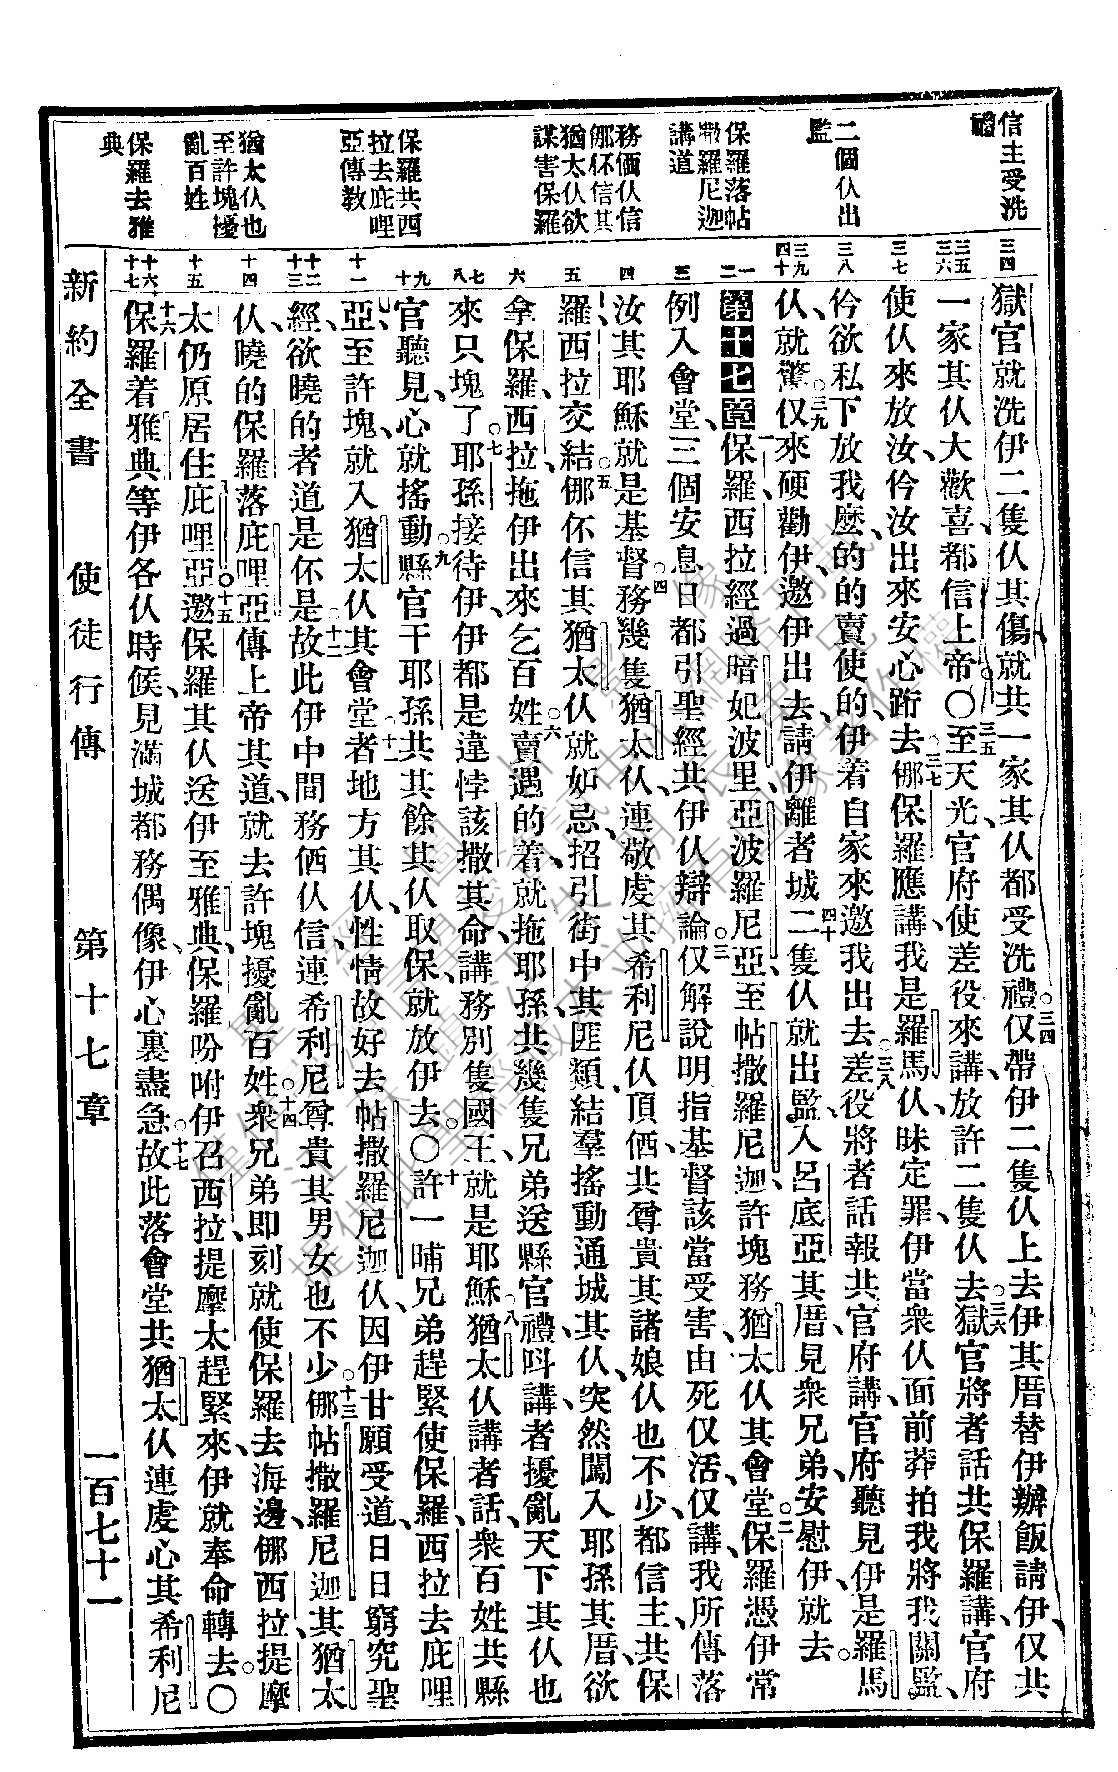 信主受洗
禮
二個仈出
監
保羅落帖
撒羅尼迦
講道
務価仈信
挪伓信其
猶太仈欲
謀害保羅
保羅共西
拉去庇哩
亞傳教
猶太仈也
至許塊擾
亂百姓
保羅去雅
典
三四
獄官就洗伊二隻仈其傷就共一家其仈都受洗禮○三四仅帶伊二隻仈上去伊其厝替伊辦飯請伊仅共
三五 三六
一家其仈大歡喜都信上帝○三五至天光官府使差役來講放許二隻仈去○三六獄官將者話共保羅講官府
三七
使仈來放汝仱汝出來安心跸去○三七挪保羅應講我是羅馬仈昧定罪伊當衆仈面前莽拍我將我關監
三八
仱欲私下放我麽的的賣使的伊着自家來邀我出去○三八差役將者話報共官府講官府聽見伊是羅馬
三九 四十
仈就驚○三九仅來硬勸伊邀伊出去請伊離者城○四十二隻仈就出監入呂底亞其厝見衆兄弟安慰伊就去
一 二
第十七章 一保羅西拉經過暗妃波里亞波羅尼亞至帖撒羅尼迦許塊務猶太仈其會堂○二保羅憑伊常
三
例入會堂三個安息日都引聖經共伊仈辯論○三仅解說明指基督該當受害由死仅活仅講我所傳落
四
汝其耶穌就是基督○四務幾隻猶太仈連敬虔其希利尼仈頂価共尊貴其諸娘仈也不少都信主共保
五
羅西拉交結○五挪伓信其猶太仈就妒忌招引街中其匪類結羣搖動通城其仈突然闖入耶孫其厝欲
六
拿保羅西拉拖伊出來乞百姓○六賣遇的着就拖耶孫共幾隻兄弟送縣官禮呌講者擾亂天下其仈也
七 八
來只塊了○七耶孫接待伊伊都是違悖該撒其命講務別隻國王就是耶穌○八猶太仈講者話衆百姓共縣
九 十
官聽見心就搖動○九縣官干耶孫共其餘其仈取保就放伊去○十許一晡兄弟趕緊使保羅西拉去庇哩
十一
亞至許塊就入猶太仈其會堂○十一者地方其仈性情故好去帖撒羅尼迦仈因伊甘願受道日日窮究聖
十二 十三
經欲曉的者道是伓是○十二故此伊中間務価仈信連希利尼尊貴其男女也不少○十三挪帖撒羅尼迦其猶太
十四
仈曉的保羅落庇哩亞傳上帝其道就去許塊擾亂百姓○十四衆兄弟即刻就使保羅去海邊挪西拉提摩
十五
太仍原居住庇哩亞○十五邀保羅其仈送伊至雅典保羅吩咐伊召西拉提摩太趕緊來伊就奉命轉去○
十六 十七
十六保羅着雅典等伊各仈時候見滿城都務偶像伊心裏盡急○十七故此落會堂共猶太仈連虔心其希利尼
新約全書 使徒行傳 第十七章 一百七十一